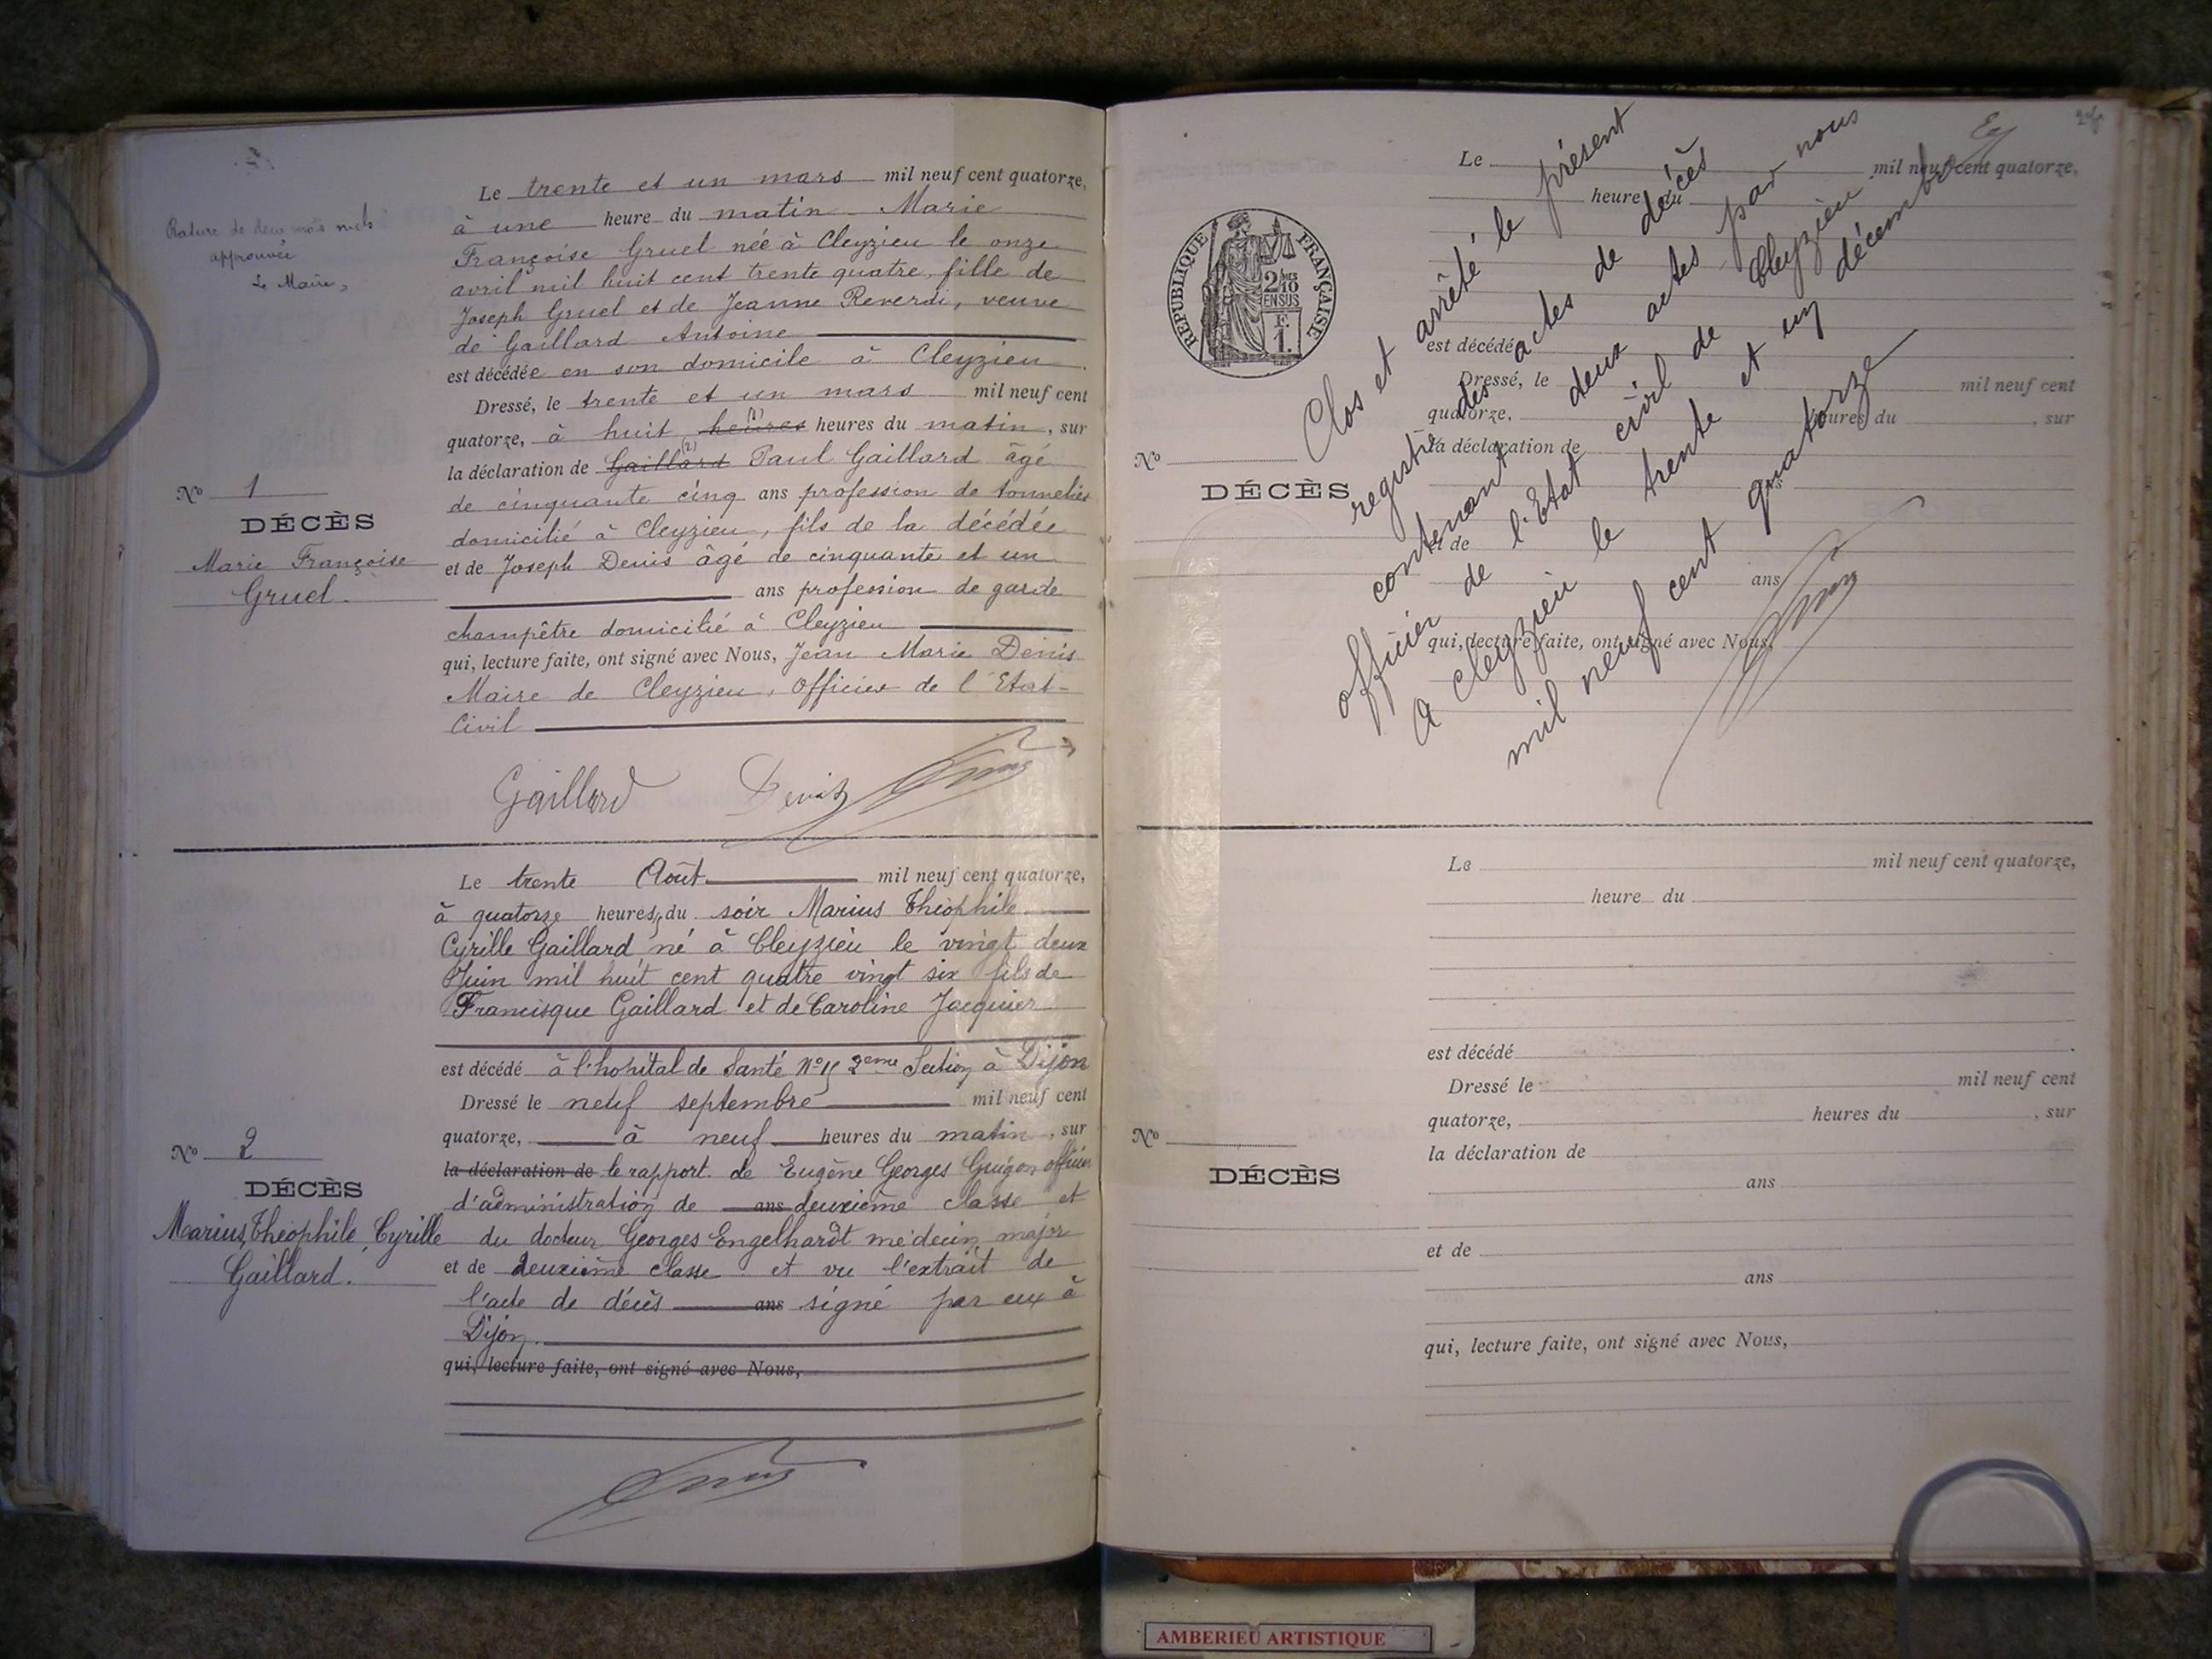 Rature de deux mots nuls
approuvée
Le Maire,
Le trente et un mars mil neuf cent quatorze,
à une heure du matin Marie
Françoise Gruel née à Cleyzieu le onze
avril mil huit cent trente quatre, fille de
Joseph Gruel et de Jeanne Reverdi, veuve
de Gaillard Antoine
est décédée en son domicile à Cleyzieu.
Dressé, le trente et un mars mil neuf cent
quatorze, à huit heures (1) heures du matin, sur
la déclaration de Gaillard (2) Paul Gaillard âgé
de cinquante cinq ans profession de tonnelier
domicilié à Cleyzieu, fils de la décédée
et de Joseph Denis âgé de cinquante et un
ans profession de garde
champêtre domicilié à Cleyzieu
qui, lecture faite, ont signé avec Nous, Jean Marie Denis
Maire de Cleyzieu, Officier de l'Etat-
Civil
No 1
DÉCÈS
Marie Françoise
Gruel.
Gaillard Denis
Le trente Août mil neuf cent quatorze,
à quatorze heures, du soir Marius Théophile
Cyrille Gaillard né à Cleyzieu le vingt deux
Juin mil huit cent quatre vingt six fils de
Francisque Gaillard et de Caroline Jacquier
est décédé à l'hopital de Santé No 15 2eme Section à Dijon
Dressé le neuf septembre mil neuf cent
quatorze, à neuf heures du matin, sur
la déclaration de le rapport de Eugène Georges Guigon officier
d'administration de ans deuxième classe et
du docteur Georges Engelhardt médecin major
et de deuxième classe et vu l'extrait de
l'acte de décès ans signé par eux à
Dijon.
qui, lecture faite, ont signé avec Nous,
No 2
DÉCÈS
Marius, Théophile, Cyrille
Gaillard.
Le mil neuf cent quatorze,
heure du
RÉPUBLIQUE FRANÇAISE
2/10
EN SUS
F.
1.
est décédé
Dressé, le mil neuf cent
quatorze, heures du , sur
la déclaration de
ans
et de
ans
qui, lecture faite, ont signé avec Nous,
No
DÉCÈS
Clos et arrêté le présent
registre des actes de décès
contenant deux actes par nous
officier de l'Etat civil de Cleyzieu.
A Cleyzieu le trente et un décembre
mil neuf cent quatorze
Le mil neuf cent quatorze,
heure du
est décédé
Dressé le mil neuf cent
quatorze, heures du , sur
la déclaration de
ans
et de
ans
qui, lecture faite, ont signé avec Nous,
No
DÉCÈS
AMBERIEU ARTISTIQUE